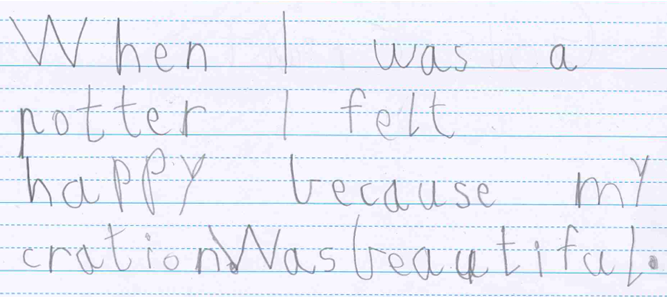 When I was a
potter I felt
happy because my
crationWasbeautiful.